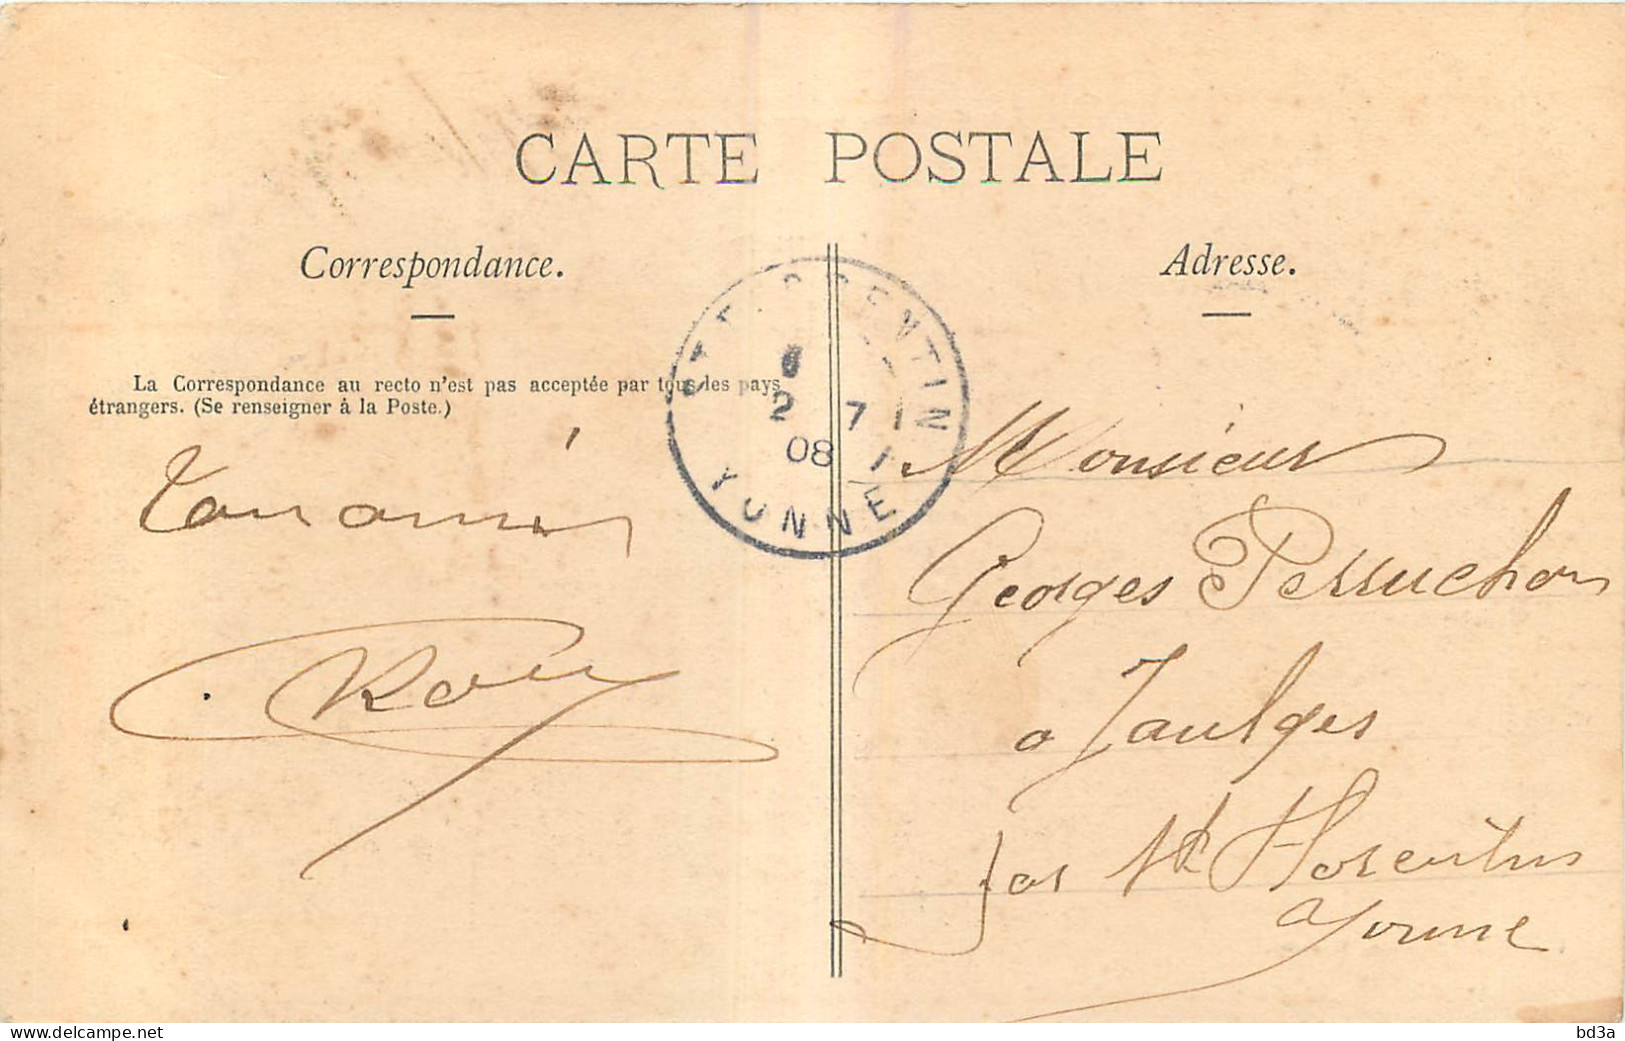 CARTE POSTALE
Correspondance.
Adresse.
La Correspondance au recto n'est pas acceptée par tous les pays
étrangers. (Se renseigner à la Poste.)
ST FLORENTIN
2 7
08
YONNE
Ton ami
Roy
Monsieur
Georges Perruchon
a Jaulges
par St Florentin
Yonne
www.delcampe.net
bd3a